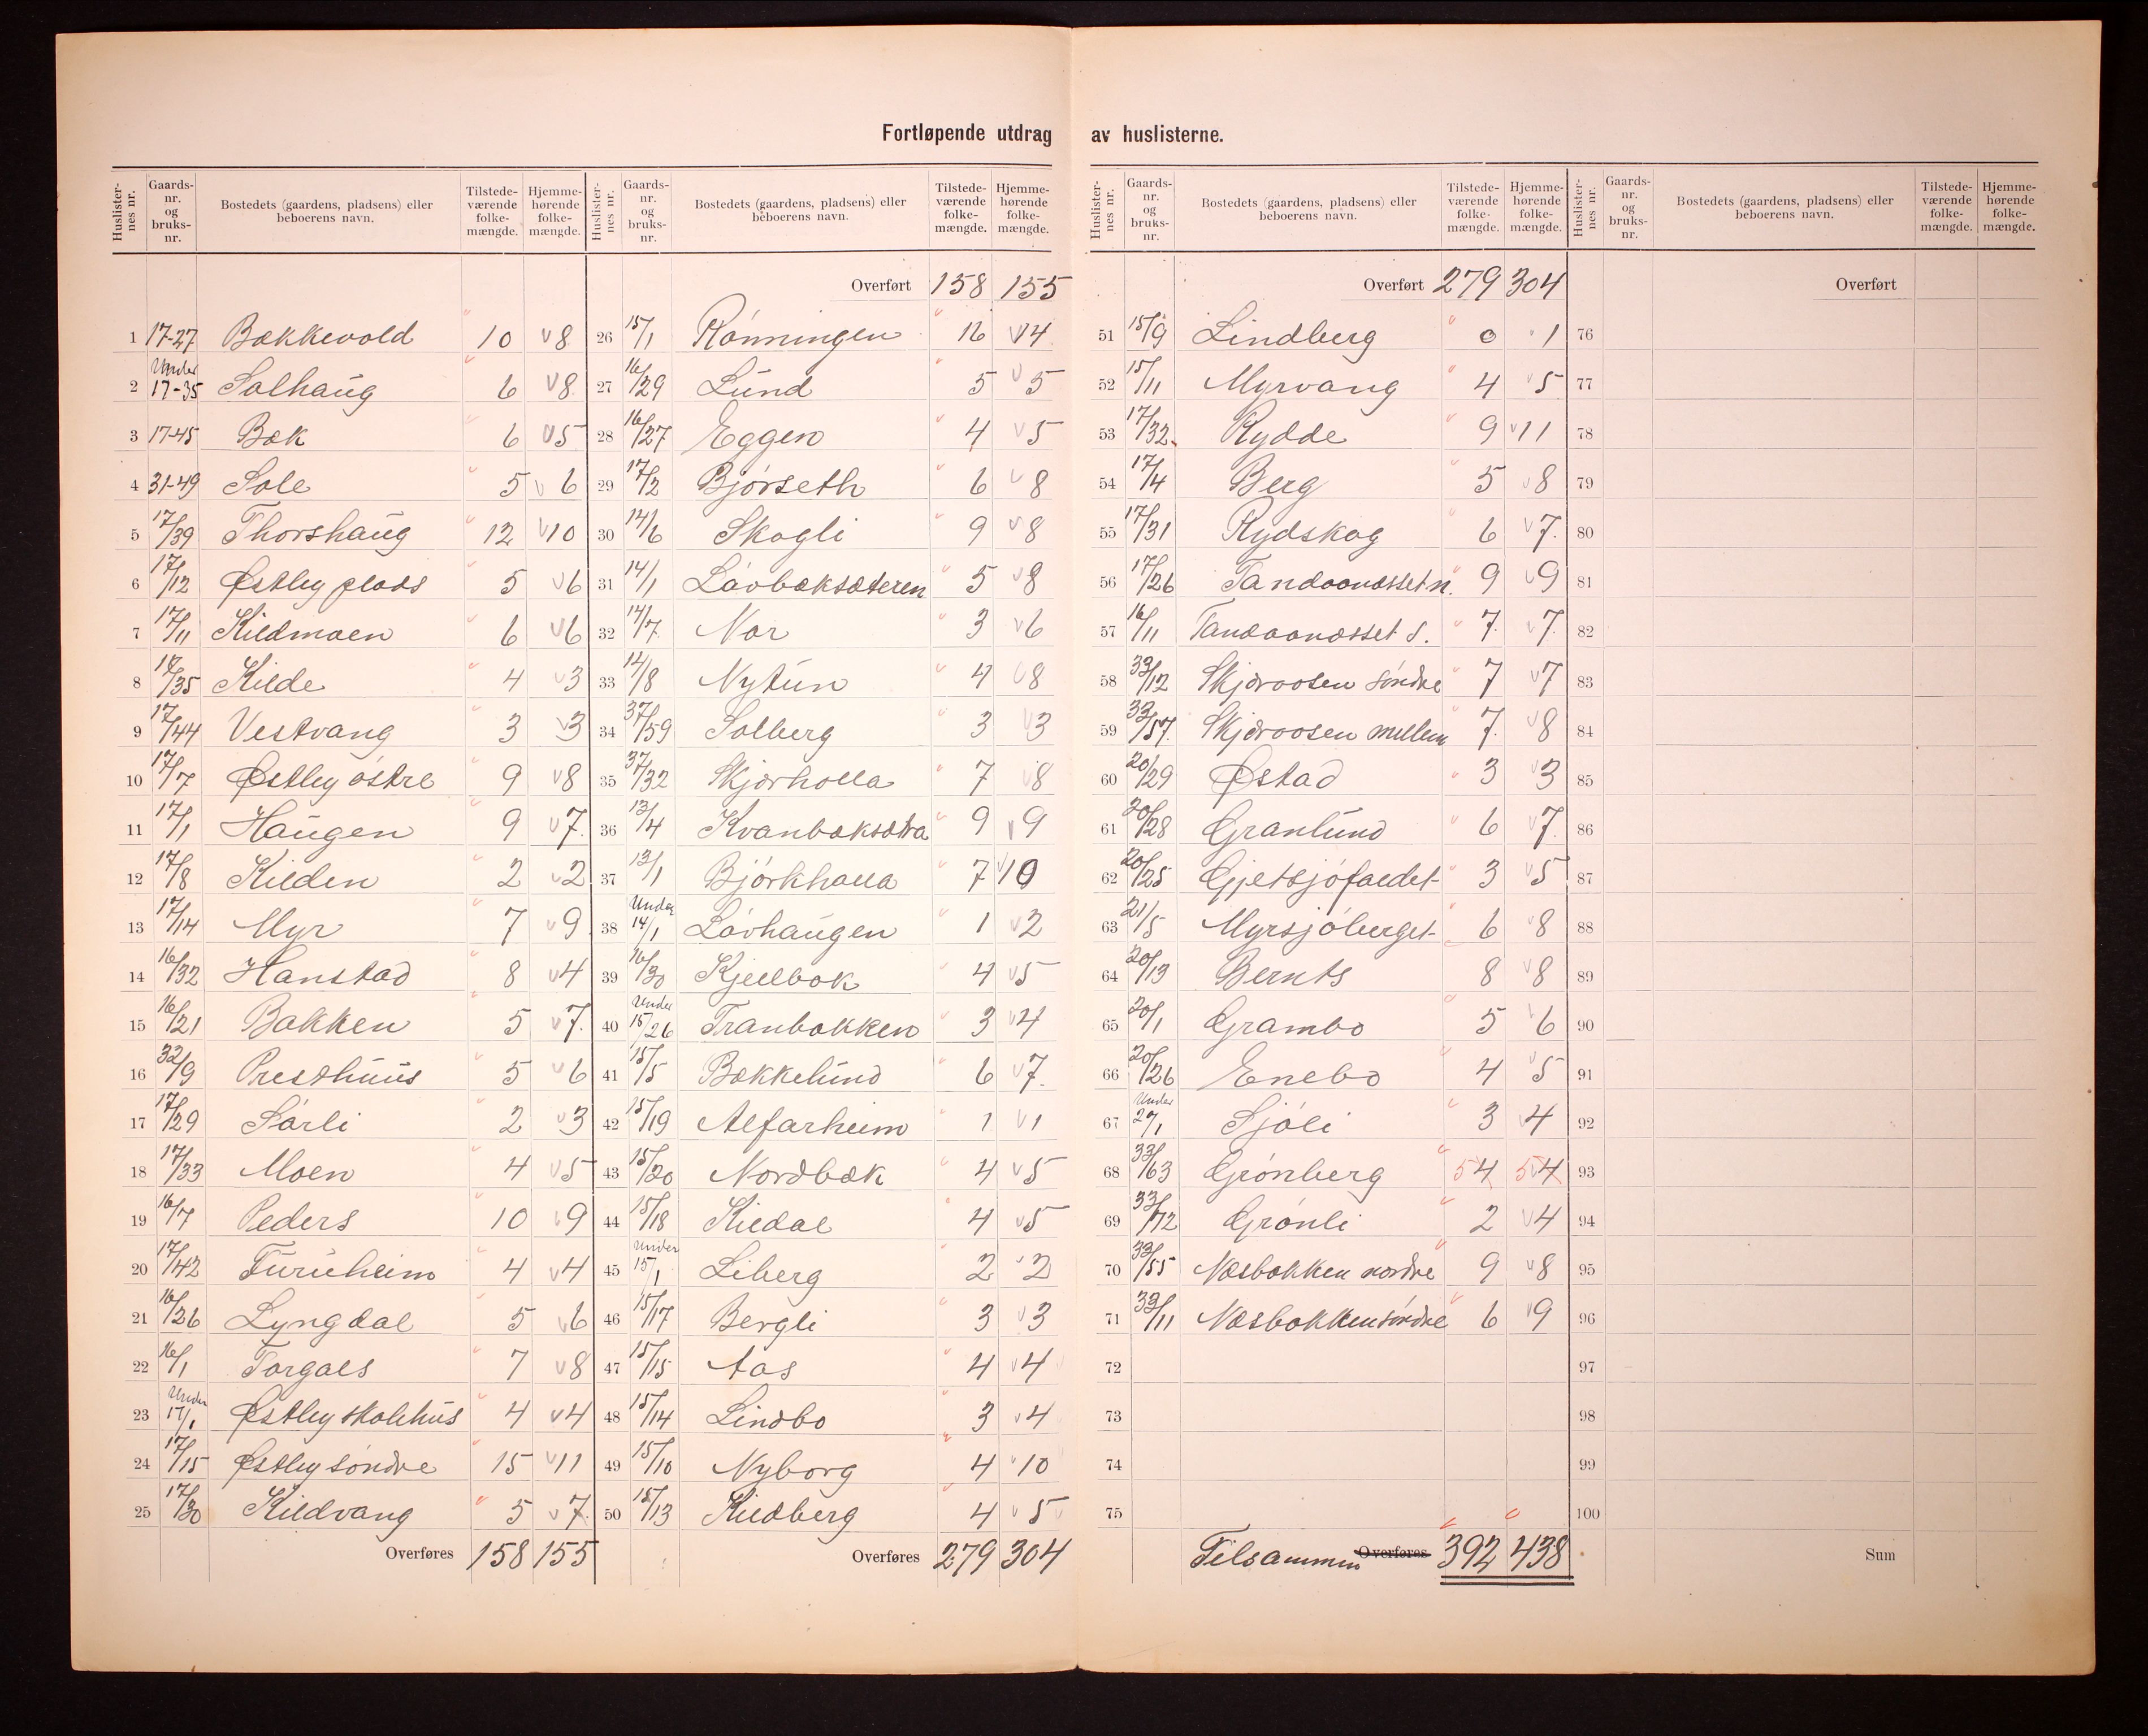 Fortløpende utdrag av huslisterne.
Huslisternes nr. Gaards-nr. og bruks-nr. Bostedets (gaardens, pladsens) eller beboerens navn. Tilstede-værende folke-mængde. Hjemme-hørende folke-mængde.
1 17-27 Bækkevold 10 8
2 Under 17-35 Solhaug 6 8
3 17-45 Bæk 6 5
4 31-49 Sole 5 6
5 17/39 Thorshaug 12 10
6 17/12 Østby plads 5 6
7 17/11 Kildmoen 6 6
8 17/35 Kilde 4 3
9 17/44 Vestvang 3 3
10 17/7 Østby østre 9 8
11 17/1 Haugen 9 7
12 17/8 Kilden 2 2
13 17/14 Myr 7 9
14 16/32 Hanstad 8 4
15 16/21 Bakken 5 7
16 32/9 Presthuus 5 6
17 17/29 Sørli 2 3
18 17/33 Moen 4 5
19 16/7 Peders 10 9
20 17/42 Furuheim 4 4
21 16/26 Lyngdal 5 6
22 16/1 Torgals 7 8
23 Under 17/1 Østby skolehus 4 4
24 17/15 Østby søndre 15 11
25 17/30 Kildvang 5 7
Overføres 158 155
Huslisternes nr. Gaards-nr. og bruks-nr. Bostedets (gaardens, pladsens) eller beboerens navn. Tilstede-værende folke-mængde. Hjemme-hørende folke-mængde.
Overført 158 155
26 15/1 Rønningen 4
27 16/29 Lund 5 5
28 16/27 Eggen 4 5
29 17/2 Bjørseth 6 8
30 14/6 Skogli 9 8
31 14/1 Løvbæksæteren 5 8
32 14/7 Nor 3 6
33 14/8 Nytun 4 8
34 37/59 Solberg 3 3
35 37/32 Skjærholla 7 8
36 13/4 Kvanbæksætra 9 9
37 13/1 Bjørkholla 7 10
38 Under 14/1 Løvhaugen 1 2
39 16/30 Kjelbæk 4 5
40 Under 15/26 Tranbakken 3 4
41 15/5 Bækkelund 6 7
42 15/19 Alfarheim 1 1
43 15/20 Nordbæk 4 5
44 15/18 Kildal 4 5
45 Under 15/1 Liberg 2 2
46 15/17 Bergli 3 3
47 15/15 Aas 4 4
48 15/14 Lindbo 3 4
49 15/10 Nyborg 4 10
50 15/13 Kildberg 4 5
Overføres 279 304
Huslisternes nr. Gaards-nr. og bruks-nr. Bostedets (gaardens, pladsens) eller beboerens navn. Tilstede-værende folke-mængde. Hjemme-hørende folke-mængde.
Overført 279 304
51 15/9 Lindberg 0 1
52 15/11 Myrvang 4 5
53 17/32 Rydde 9 11
54 17/4 Berg 5 8
55 17/31 Rydskog 6 7
56 17/26 Tandaanæsset n. 9 9
57 16/11 Tandaanæsset s. 7 7
58 33/12 Skjæraasen søndre 7 7
59 33/57 Skjæraasen mellem 7 8
60 20/29 Østad 3 3
61 20/28 Granlund 6 7
62 20/25 Gjetsjøfaldet 3 5
63 21/5 Myrsjøberget 6 8
64 20/13 Bernts 8 8
65 20/1 Grambo 5 6
66 20/26 Enebo 4 5
67 Under 27/1 Sjøli 3 4
68 33/63 Grønberg 5 4 5 4
69 33/72 Grønli 2 4
70 33/55 Næsbakken nordre 9 8
71 33/11 Næsbakken søndre 6 9
72
73
74
75
Tilsammen Overføres 392 438
Huslisternes nr. Gaards-nr. og bruks-nr. Bostedets (gaardens, pladsens) eller beboerens navn. Tilstede-værende folke-mængde. Hjemme-hørende folke-mængde.
Overført
76
77
78
79
80
81
82
83
84
85
86
87
88
89
90
91
92
93
94
95
96
97
98
99
100
Sum